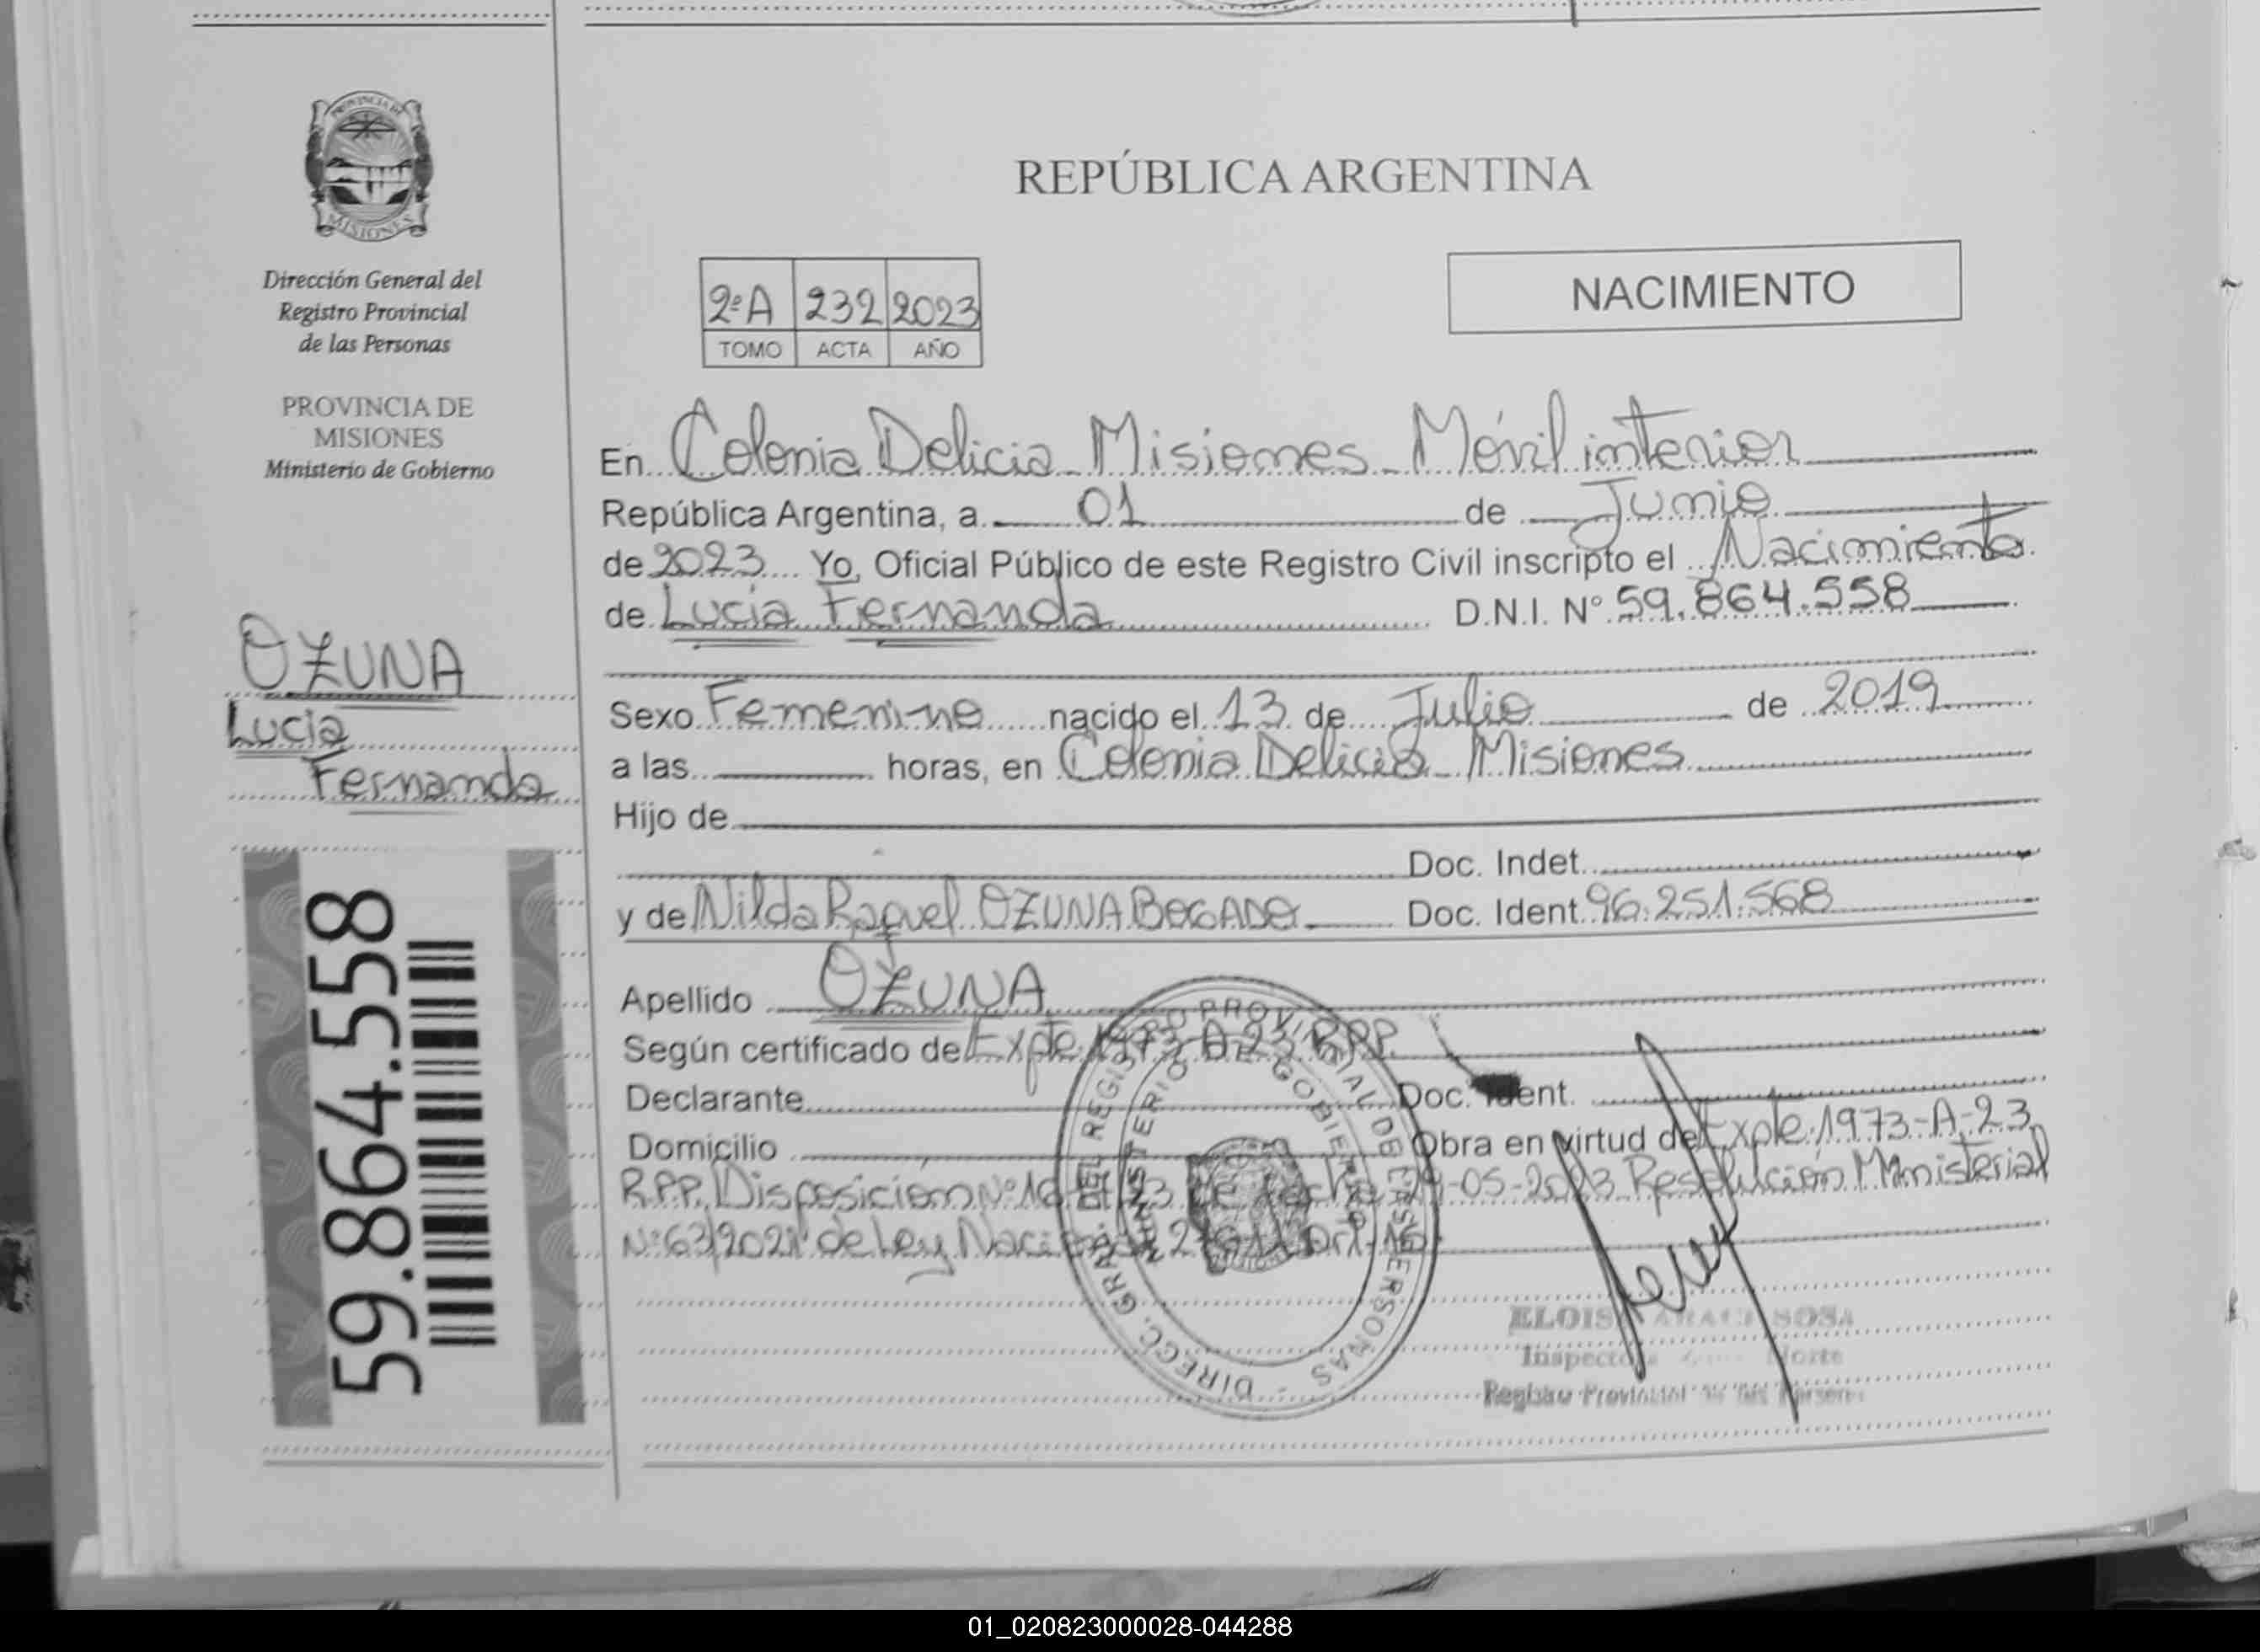 REPÚBLICA ARGENTINA
PROVINCIA DE
MISIONES
Dirección General del
Registro Provincial
de las Personas
PROVINCIA DE
MISIONES
Ministerio de Gobierno
OZUNA
Lucia
Fernanda
59.864.558
2ºA 232 2023
TOMO ACTA AÑO
NACIMIENTO
En Colonia Delicia - Misiones - Móvil interior
República Argentina, a 01 de Junio
de 2023 Yo, Oficial Público de este Registro Civil inscripto el Nacimiento
de Lucia Fernanda D.N.I. Nº 59.864.558
Sexo Femenino nacido el 13 de Julio de 2019
a las horas, en Colonia Delicia - Misiones
Hijo de
Doc. Indet.
y de Nilda Raquel OZUNA BOGADO Doc. Ident. 96.251.568
Apellido OZUNA
Según certificado de Expte. 1973-A-23 RPP.
Declarante Doc. Ident.
Domicilio Obra en virtud de Expte. 1973-A-23
R.P.P. Disposición Nº 05-2023 Resolución Ministerial
Nº 63/2021 de Ley Nacional Art. 16
DIRECC. GRAL. DEL REGISTRO PROVINCIAL DE LAS PERSONAS
MINISTERIO DE GOBIERNO
SOSA
Inspectora Norte
Registro Provincial de las Personas
01_020823000028-044288